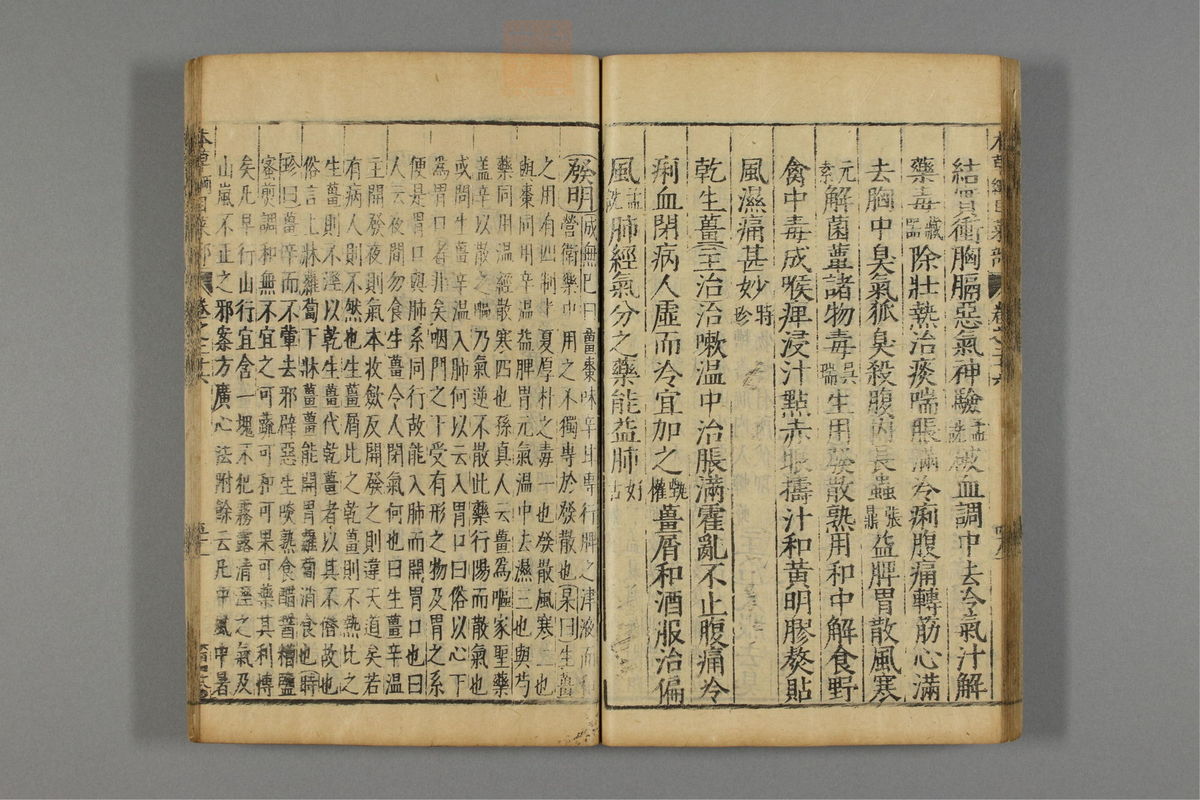 結實衝胸膈惡氣神驗孟詵破血調中去冷氣汁解
藥毒藏器除壯熱治痰喘脹滿冷痢腹痛轉筋心滿
去胸中臭氣狐臭殺腹內長蟲張鼎益脾胃散風寒
元素解菌蕈諸物毒吳瑞生用發散熟用和中解食野
禽中毒成喉痺浸汁點赤眼擣汁和黃明膠熬貼
風濕痛甚妙時珍
乾生薑主治治嗽温中治脹滿霍亂不止腹痛冷
痢血閉病人虛而冷宜加之甄權薑屑和酒服治偏
風孟詵肺經氣分之藥能益肺好古
發明成無已曰薑棗味辛甘專行脾之津液而和
營衛藥中用之不獨專於發散也杲曰生薑
之用有四制半夏厚朴之毒一也發散風寒二也
與棗同用辛温益脾胃元氣温中去濕三也與芍
藥同用温經散寒四也孫真人云薑為嘔家聖藥
盖辛以散之嘔乃氣逆不散此藥行陽而散氣也
或問生薑辛温入肺何以云入胃口曰俗以心下
為胃口者非矣咽門之下受有形之物及胃之系
便是胃口與肺系同行故能入肺而開胃口也曰
人云夜間勿食生薑令人閉氣何也曰生薑辛温
主開發夜則氣本收斂反開發之則違天道矣若
有病人則不然也生薑屑比之乾薑則不熱比之
生薑則不溼以乾生薑代乾薑者以其不僭故也
俗言上牀蘿蔔下牀薑薑能開胃蘿蔔消食也時
珍曰薑辛而不葷去邪辟惡生啖熟食醋醬糟鹽
蜜煎調和無不宜之可蔬可和可果可藥其利博
矣凡早行山行宜含一塊不犯霧露清溼之氣及
山嵐不正之邪案方廣心法附餘云凡中風中暑